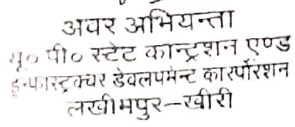 अवर अभियन्ता
यू० पी० स्टेट कान्ट्रशन एण्ड
इन्फास्ट्रक्चर डेवलपमेन्ट कारर्पोरशन
लखीमपुर–खीरी